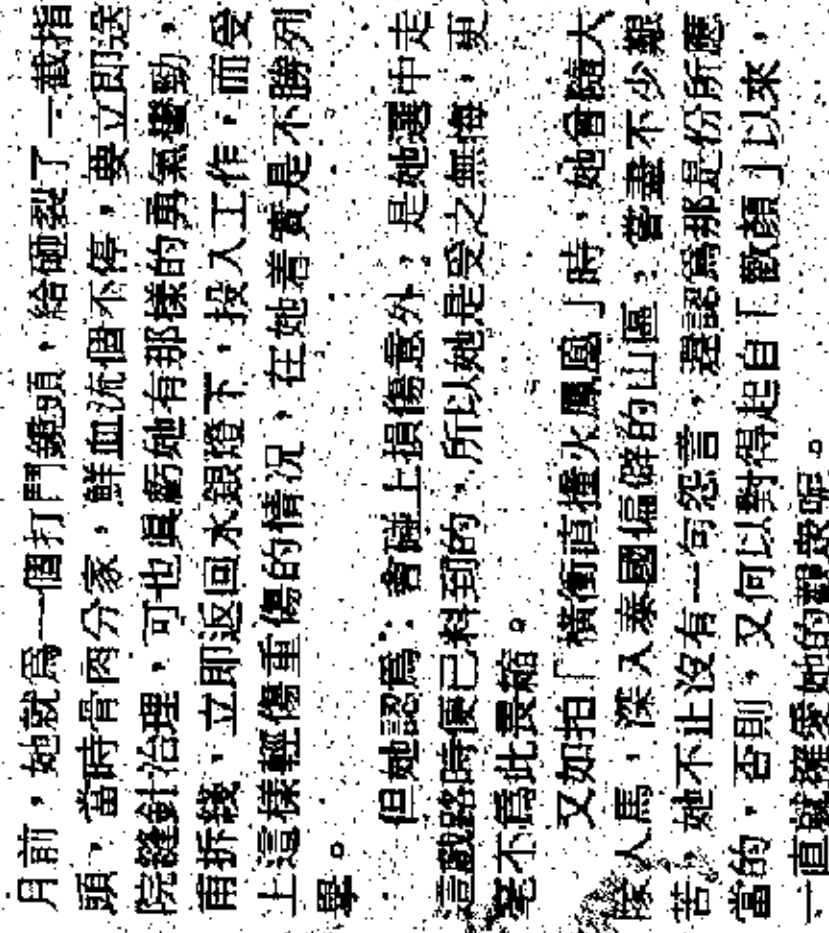 月前,她就為一個打鬥鏡頭,給砸裂了一截指
頭,當時骨肉分家,鮮血流個不停,要立即送
院縫針治理,可也眞虧她有那樣的勇氣蠻勁,
甫拆綫,立即返回水銀燈下,投入工作,而受
上這樣輕傷重傷的情況,在她着實是不勝列
舉。
但她認爲:會碰上損傷意外,是她選中走
這戲路時便已料到的,所以她是受之無悔,更
毫不爲此畏縮。
又如拍「橫衝直撞火鳳凰」時,她會隨大
隊人馬,深入泰國偏僻的山區,嘗盡不少艱
苦,她不止沒有一句怨言,還認爲那是份所應
當的,否則,又何以對得起自「歡顏」以來,
一直就擁愛她的觀衆呢。